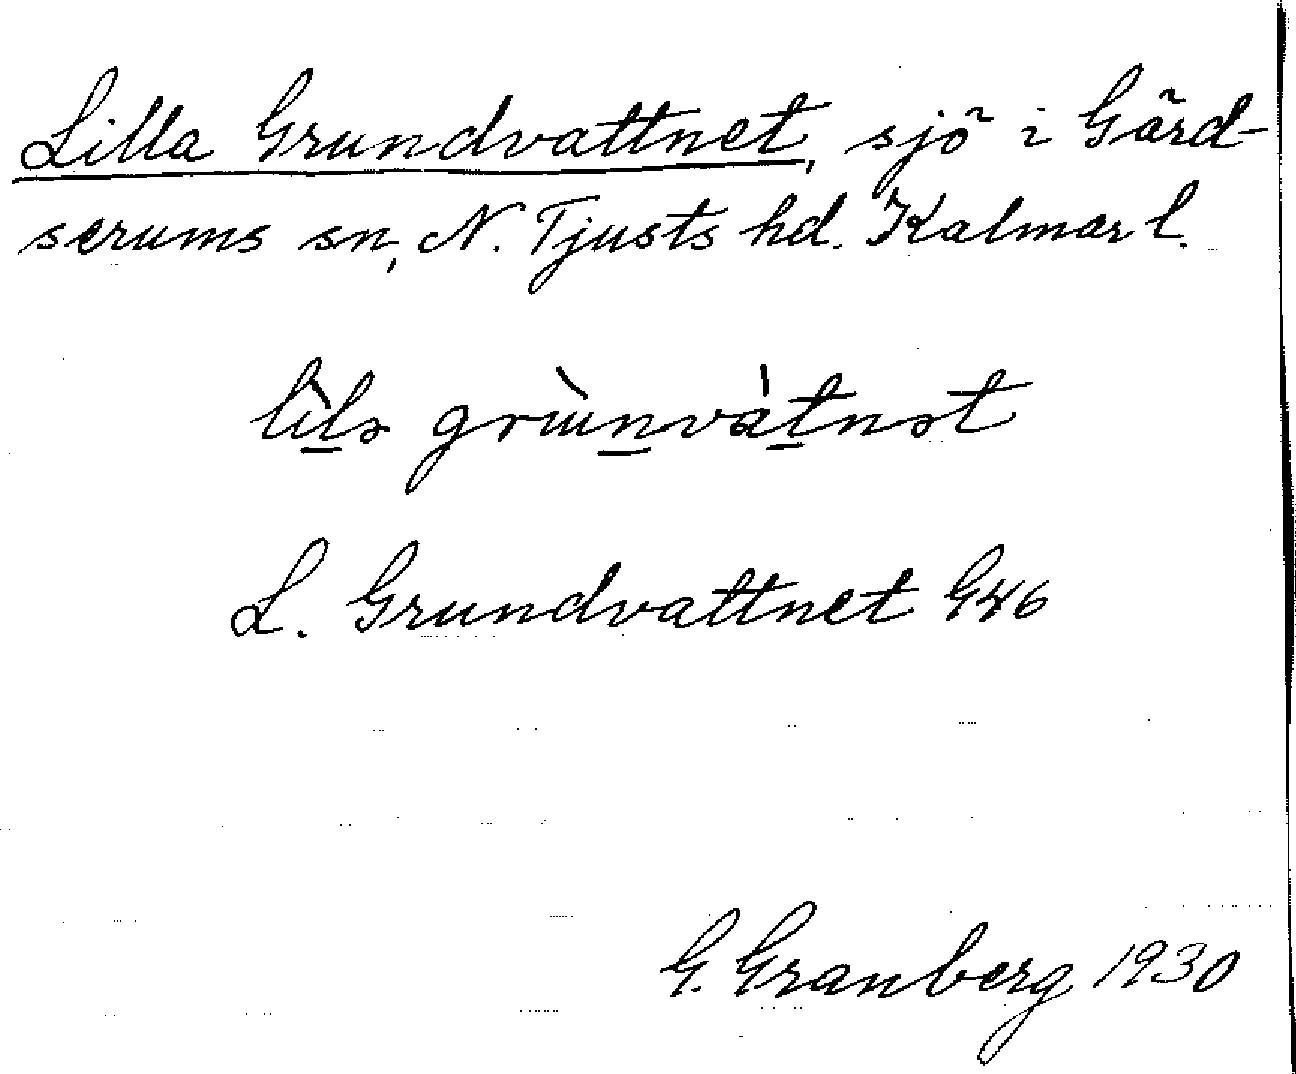 Lilla Grundvattnet, sjö i Gärd-
serums sn, N. Tjusts hd. Kalmar l.
lìl̲ə grùn̲vàt̲nət
L. Grundvattnet G46
G. Granberg 1930